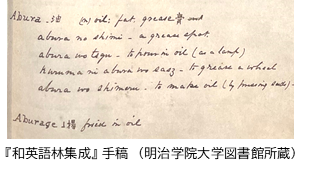 Abura 油 (n) oil: fat. grease 膏 and
abura no shimi - a grease spot
abura wo tsgu - to pour in oil (as a lamp)
kuruma ni abura wo sasz - to grease a wheel
abura wo shimeru - to make oil (by pressing seeds) -
Aburage 揚 fried in oil
『和英語林集成』手稿 (明治学院大学図書館所蔵)